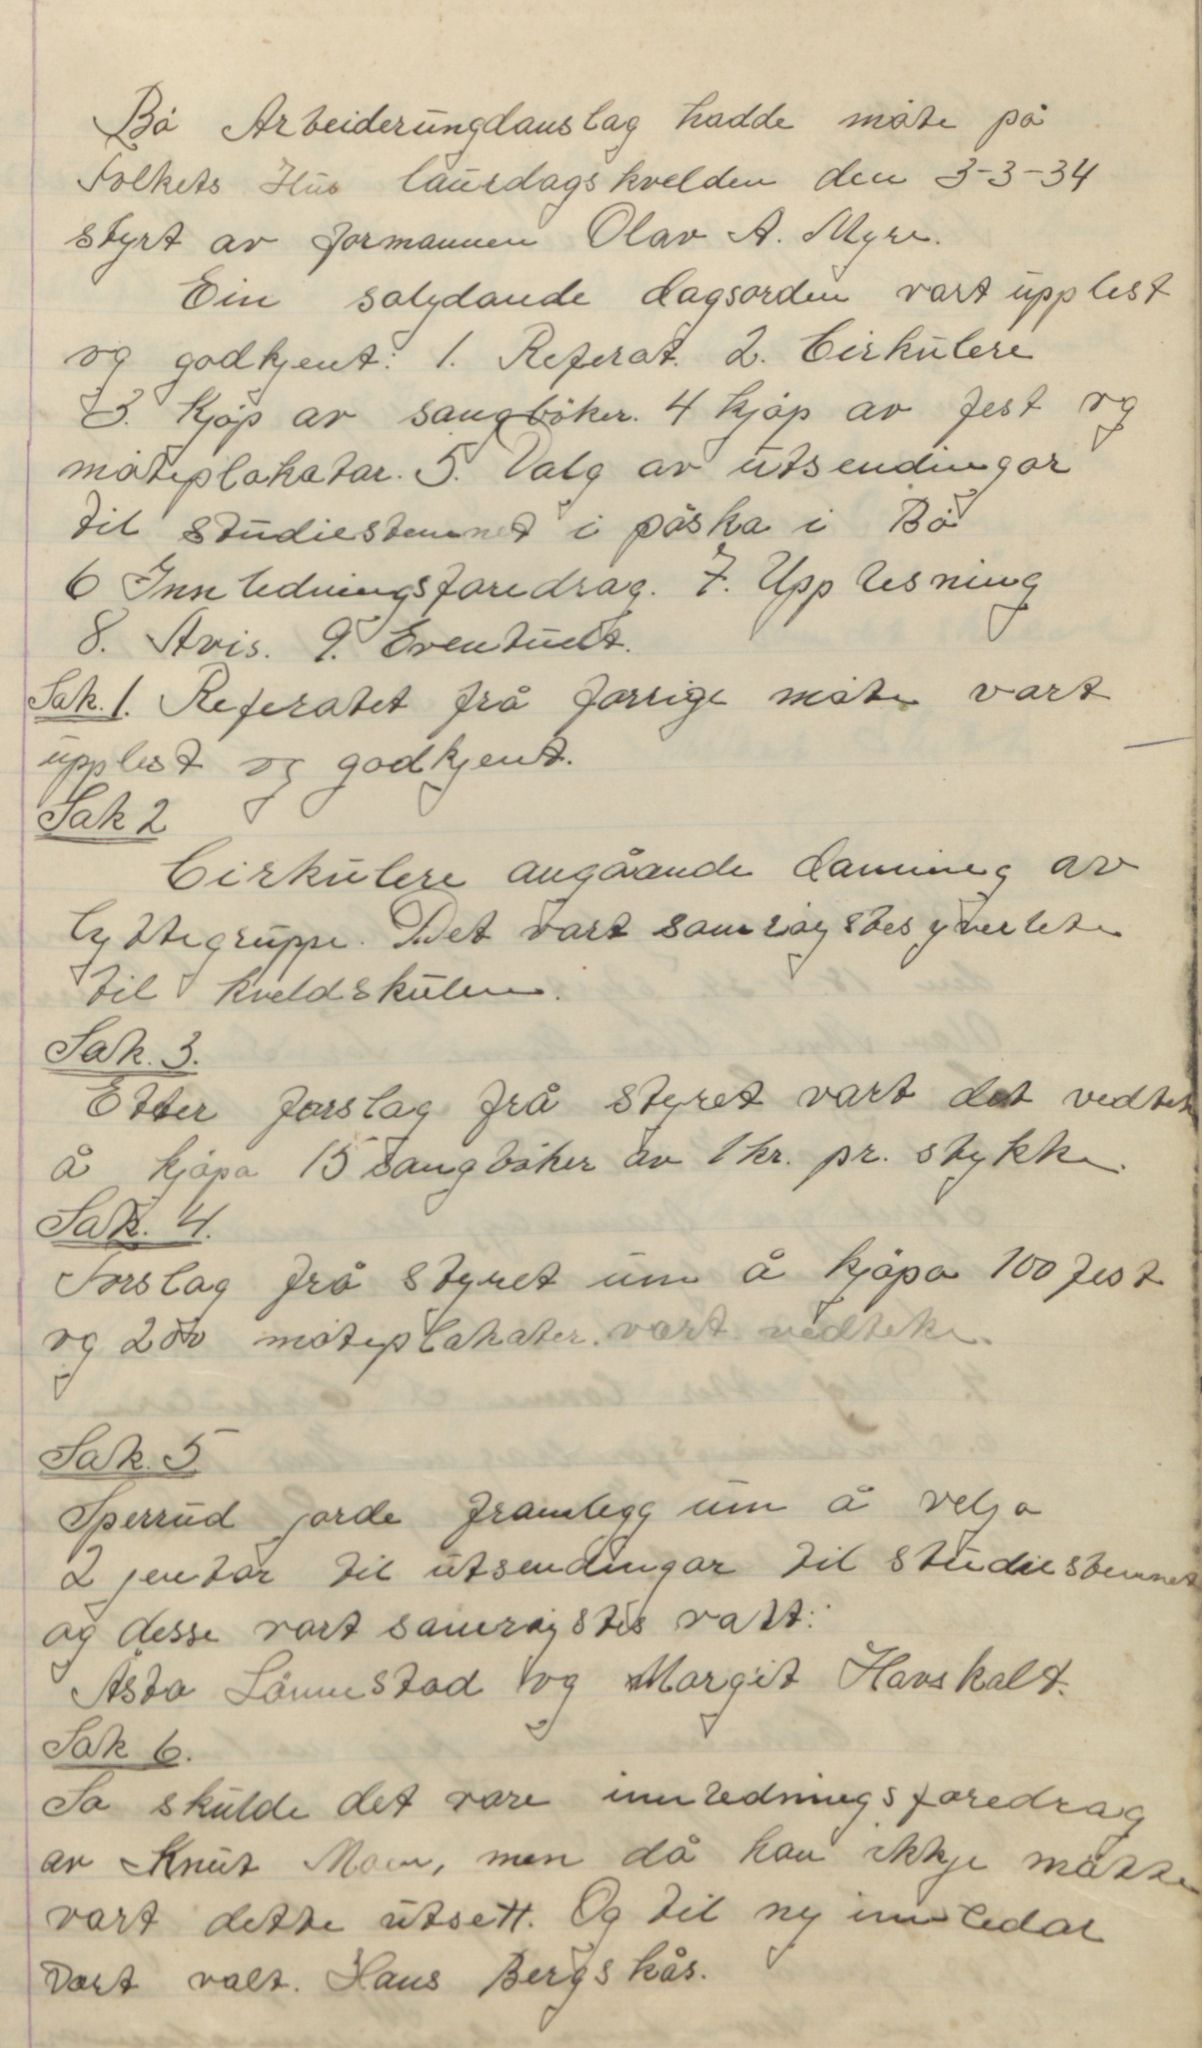 Bø Arbeiderungdauslag hadde møte på
Folkets Hus laurdagskvelden den 3-3-34
styrt av formannen Olav A. Myre.
Ein solydande dagsorden vart upplest
og godkjent: 1. Referat. 2. Cirkulere
3. Kjøp av sangbøker. 4 kjøp av fest og
møteplakatar. 5. Valg av utsendingar
til studiestemnet i påska i Bø
6 Innledningsforedrag. 7. Upplesning
8. Avis. 9. Eventuelt.
Sak. 1. Referatet frå forrige møte vart
upplest og godkjent.
Sak 2
Cirkulere angåande danning av
lyttegruppe. Det vart samrøystes yverlete
til kveldskulen.
Sak. 3.
Etter forslag frå styret vart det vedteke
å kjøpa 15 sangbøker av 1 kr. pr. stykke.
Sak. 4.
Forslag frå styret um å kjøpa 100 fest
og 200 møteplakater vart vedteke.
Sak. 5
Sperrud jorde framlegg um å velja
2 jentor til utsendingar til studiestemnet
og desse vart samrøystes valt:
Åsta Lønnestad og Margit Havskalt.
Sak 6.
So skulde det vore innledningsforedrag
av Knut Moen, men då han ikkje møtte
vart dette utsett. Og til ny innledar
vart valt. Hans Bergskås.